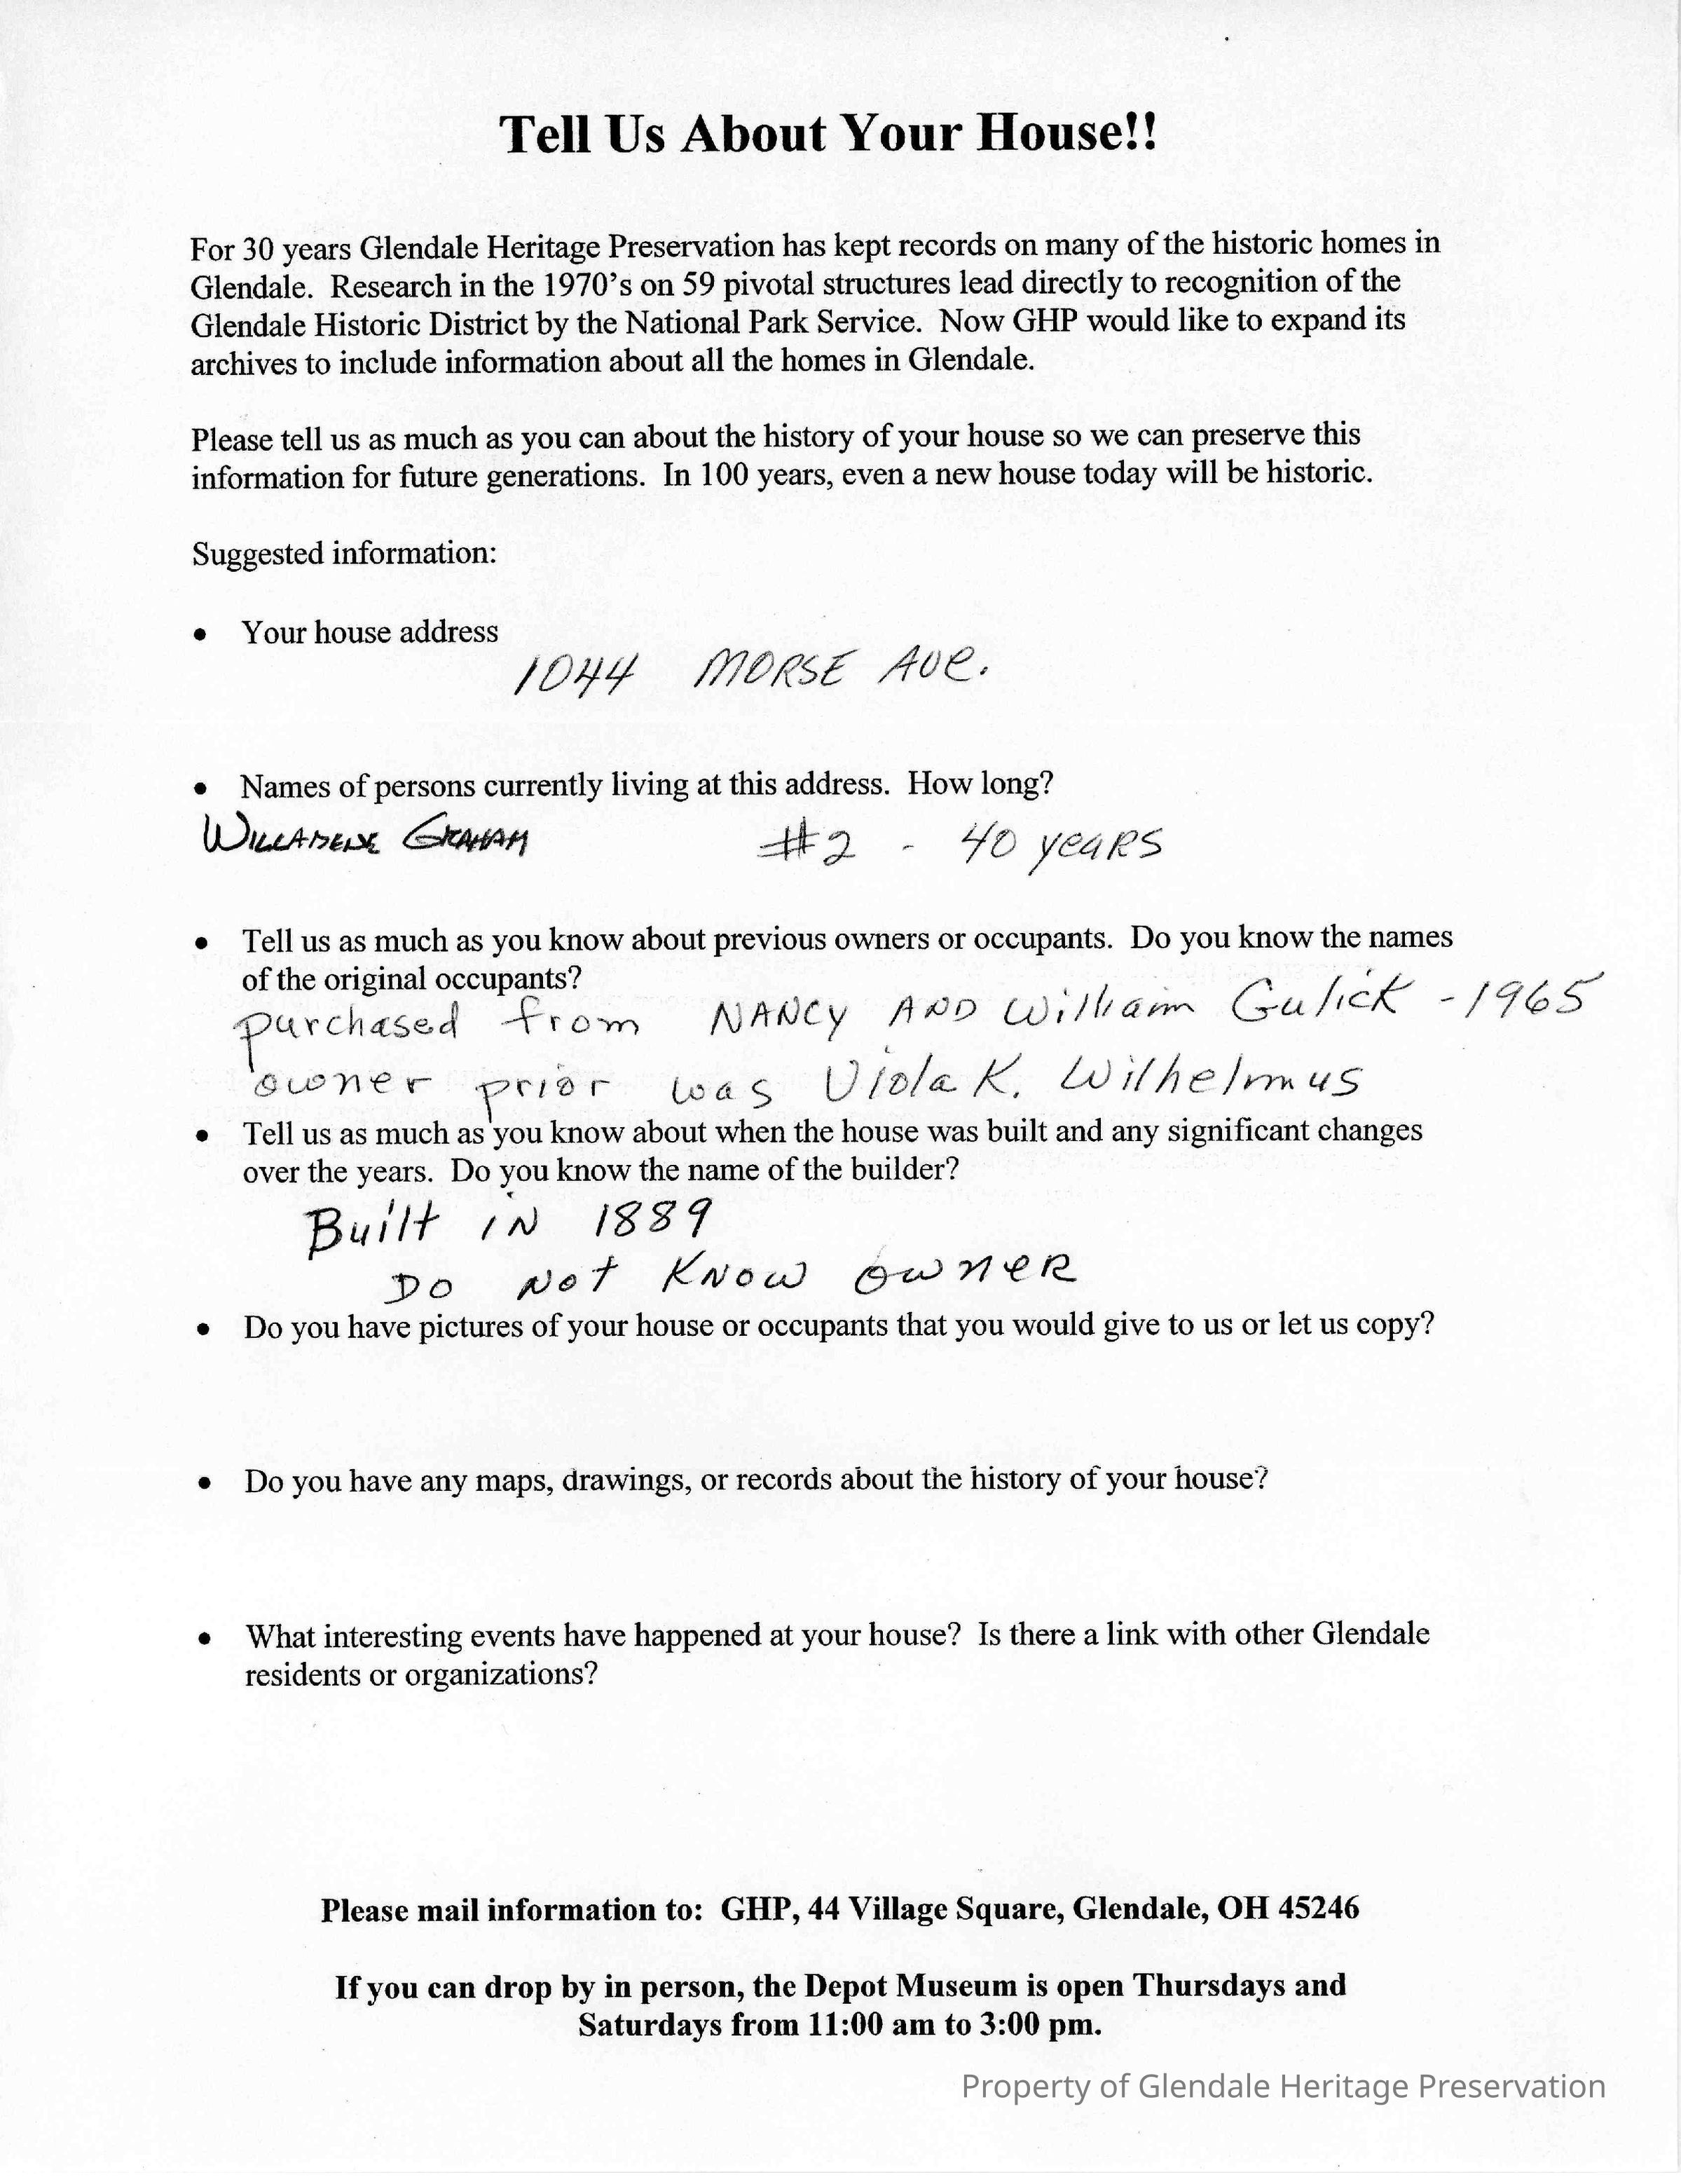 Tell Us About Your House!!
For 30 years Glendale Heritage Preservation has kept records on many of the historic homes in
Glendale. Research in the 1970's on 59 pivotal structures lead directly to recognition of the
Glendale Historic District by the National Park Service. Now GHP would like to expand its
archives to include information about all the homes in Glendale.
Please tell us as much as you can about the history of your house so we can preserve this
information for future generations. In 100 years, even a new house today will be historic.
Suggested information:
• Your house address
1044 MORSE AVE.
• Names of persons currently living at this address. How long?
WILLADENE GRAHAM #2 - 40 YEARS
• Tell us as much as you know about previous owners or occupants. Do you know the names
of the original occupants?
purchased from NANCY AND William Gulick - 1965
owner prior was Viola K. Wilhelmus
• Tell us as much as you know about when the house was built and any significant changes
over the years. Do you know the name of the builder?
Built IN 1889
DO NOT KNOW OWNER
• Do you have pictures of your house or occupants that you would give to us or let us copy?
• Do you have any maps, drawings, or records about the history of your house?
• What interesting events have happened at your house? Is there a link with other Glendale
residents or organizations?
Please mail information to: GHP, 44 Village Square, Glendale, OH 45246
If you can drop by in person, the Depot Museum is open Thursdays and
Saturdays from 11:00 am to 3:00 pm.
Property of Glendale Heritage Preservation